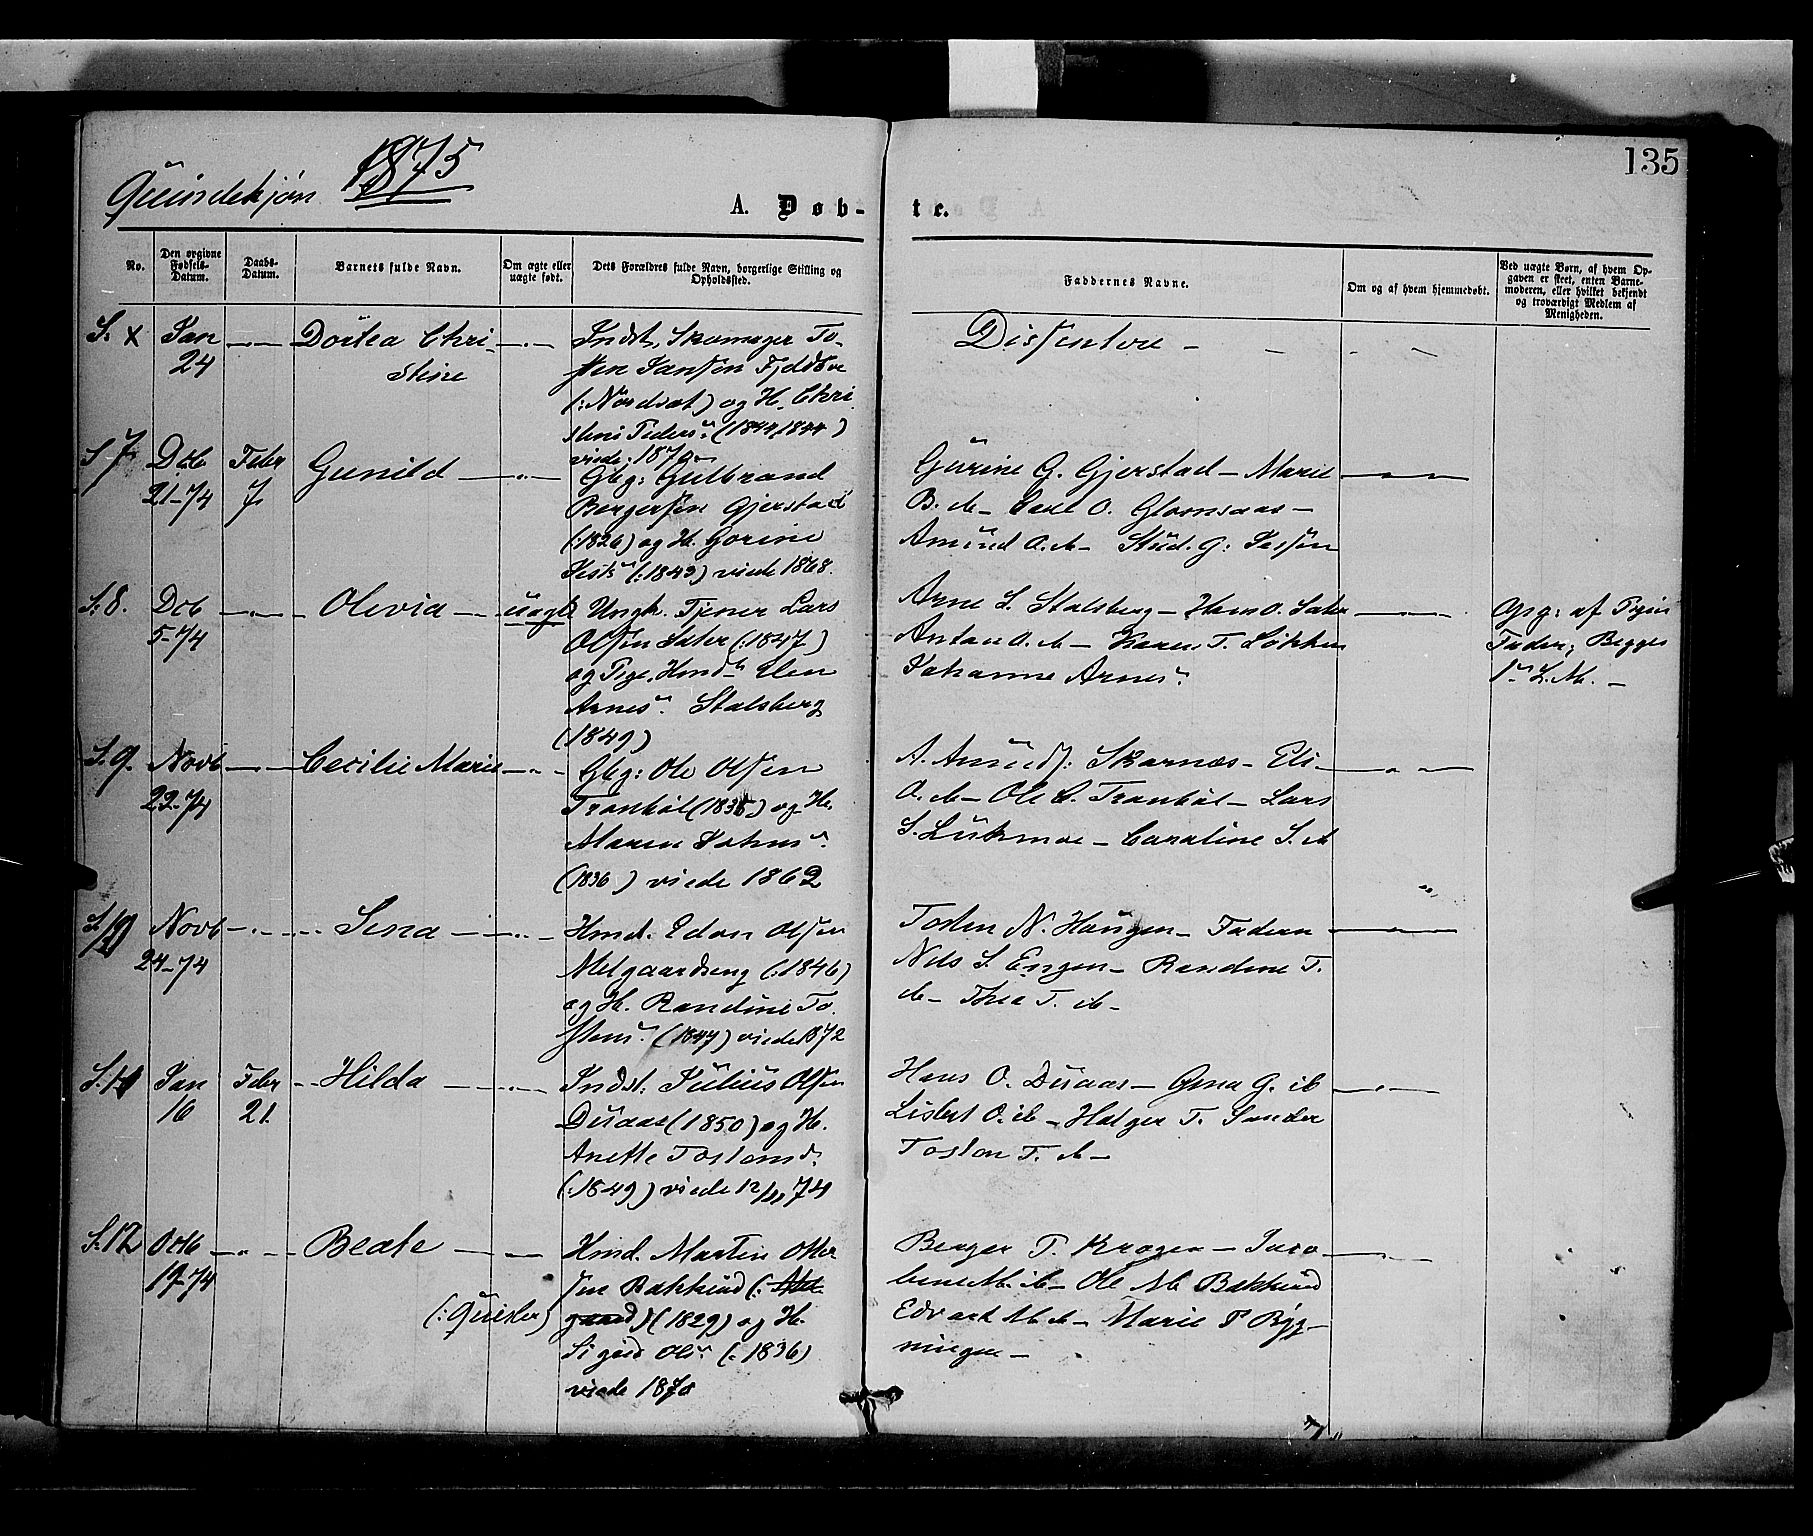 135
Quindekjøn 1875
A. Døb-
te.
No.
Den opgivne Fødsels-Datum.
Daabs-Datum.
Barnets fulde Navn.
Om ægte eller uægte født.
Dets Forældres fulde Navn, borgerlige Stilling og Opholdssted.
Faddernes Navne.
Om og af hvem hjemmedøbt.
Ved uægte Børn, af hvem Opgaven er skeet, enten Barnemoderen, eller hvilket bekjendt og troværdigt Medlem af Menigheden.
S. x Jan
24
Dortea Chri-
stine
Indst. Skomager To-
sten Jansen
(:Nordset) og H. Chri
stine Peders: (1844, 1844)
viede: 1870
Dissentere - - - -
S 7 Deb Febr
21-74 7
Gunild
Gbg: Gulbrand
Bergersen Gjerstad
(:1826) og H. Gorine
(:1843) viede 1868.
Gurine G. Gjerstad - Marie
B. ib - Carl O. Glomsaas -
Amund O. ib - Stud. G:
S. 8. Deb
5-74
Olevia
uægte
Ungk. Tjener Lars
Olsen Sater (:1847)
og Pige, Hmd Elen
Arnes: Stalsberg
(1849)
Arne S. Stalsberg - Hans O. Sater
Antan O. ib - Karen T. Løkken
Johanne Arnes:
Opg: af
Fader; Begges
1te L.M. -
S. 9. Novb
22-74
Cecilie Marie
Gbg: Ole Olsen
Tranbøl (1835) og H.
Maren Johns:
(1836) viede 1862
A. Amuds: Skarnæs - Eli
O. ib - Ole C. Tranbøl - Lars
S. Lukmoe - Caroline S. ib
S. 10 Novb
24-74
Sena
Hmd. Edvar Olsen
Melgaardseng (:1846)
og H. Randine To
stens: (1847) viede 1872
Tosten N. Haugen - Faderen
Nils S. Engen - Randine T.
ib - Thea T. ib -
S. 11 Jan Febr
16 21.
Hilda
Indst. Julius Olsen
Duaas (1850) og H.
Anette Tostensd:
(:1849) viede 12/11 74
Hans O. Duaas - Gina G. ib
Lisbet O. ib - Holger T. Sander
Tosten T. ib -
S. 12 Octb
19-74
Beate
(:Quisler)
Hmd. Martin Otter
sen Bakkerud (: Mel
gaard) (1829) og H.
Sigrid Ols: (:1836)
viede 1870
Berger T. Krogen -
M. ib - Ole M. Bakkerud
Edvart M. ib - Marie P Byg-
ningen -